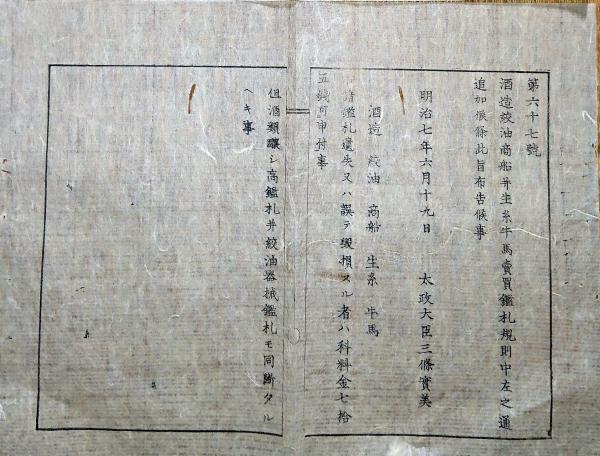 第六十七號
酒造絞油商船并生糸牛馬賣買鑑札規則中左之通
追加候條此旨布告候事
明治七年六月十九日　太政大臣三條實美
酒造　絞油　商船　生糸　牛馬
諸鑑札遺失又ハ誤テ毀損スル者ハ科料金七拾
五錢可申付事
但酒類釀シ高鑑札并絞油器械鑑札モ同斷タル
ヘキ事